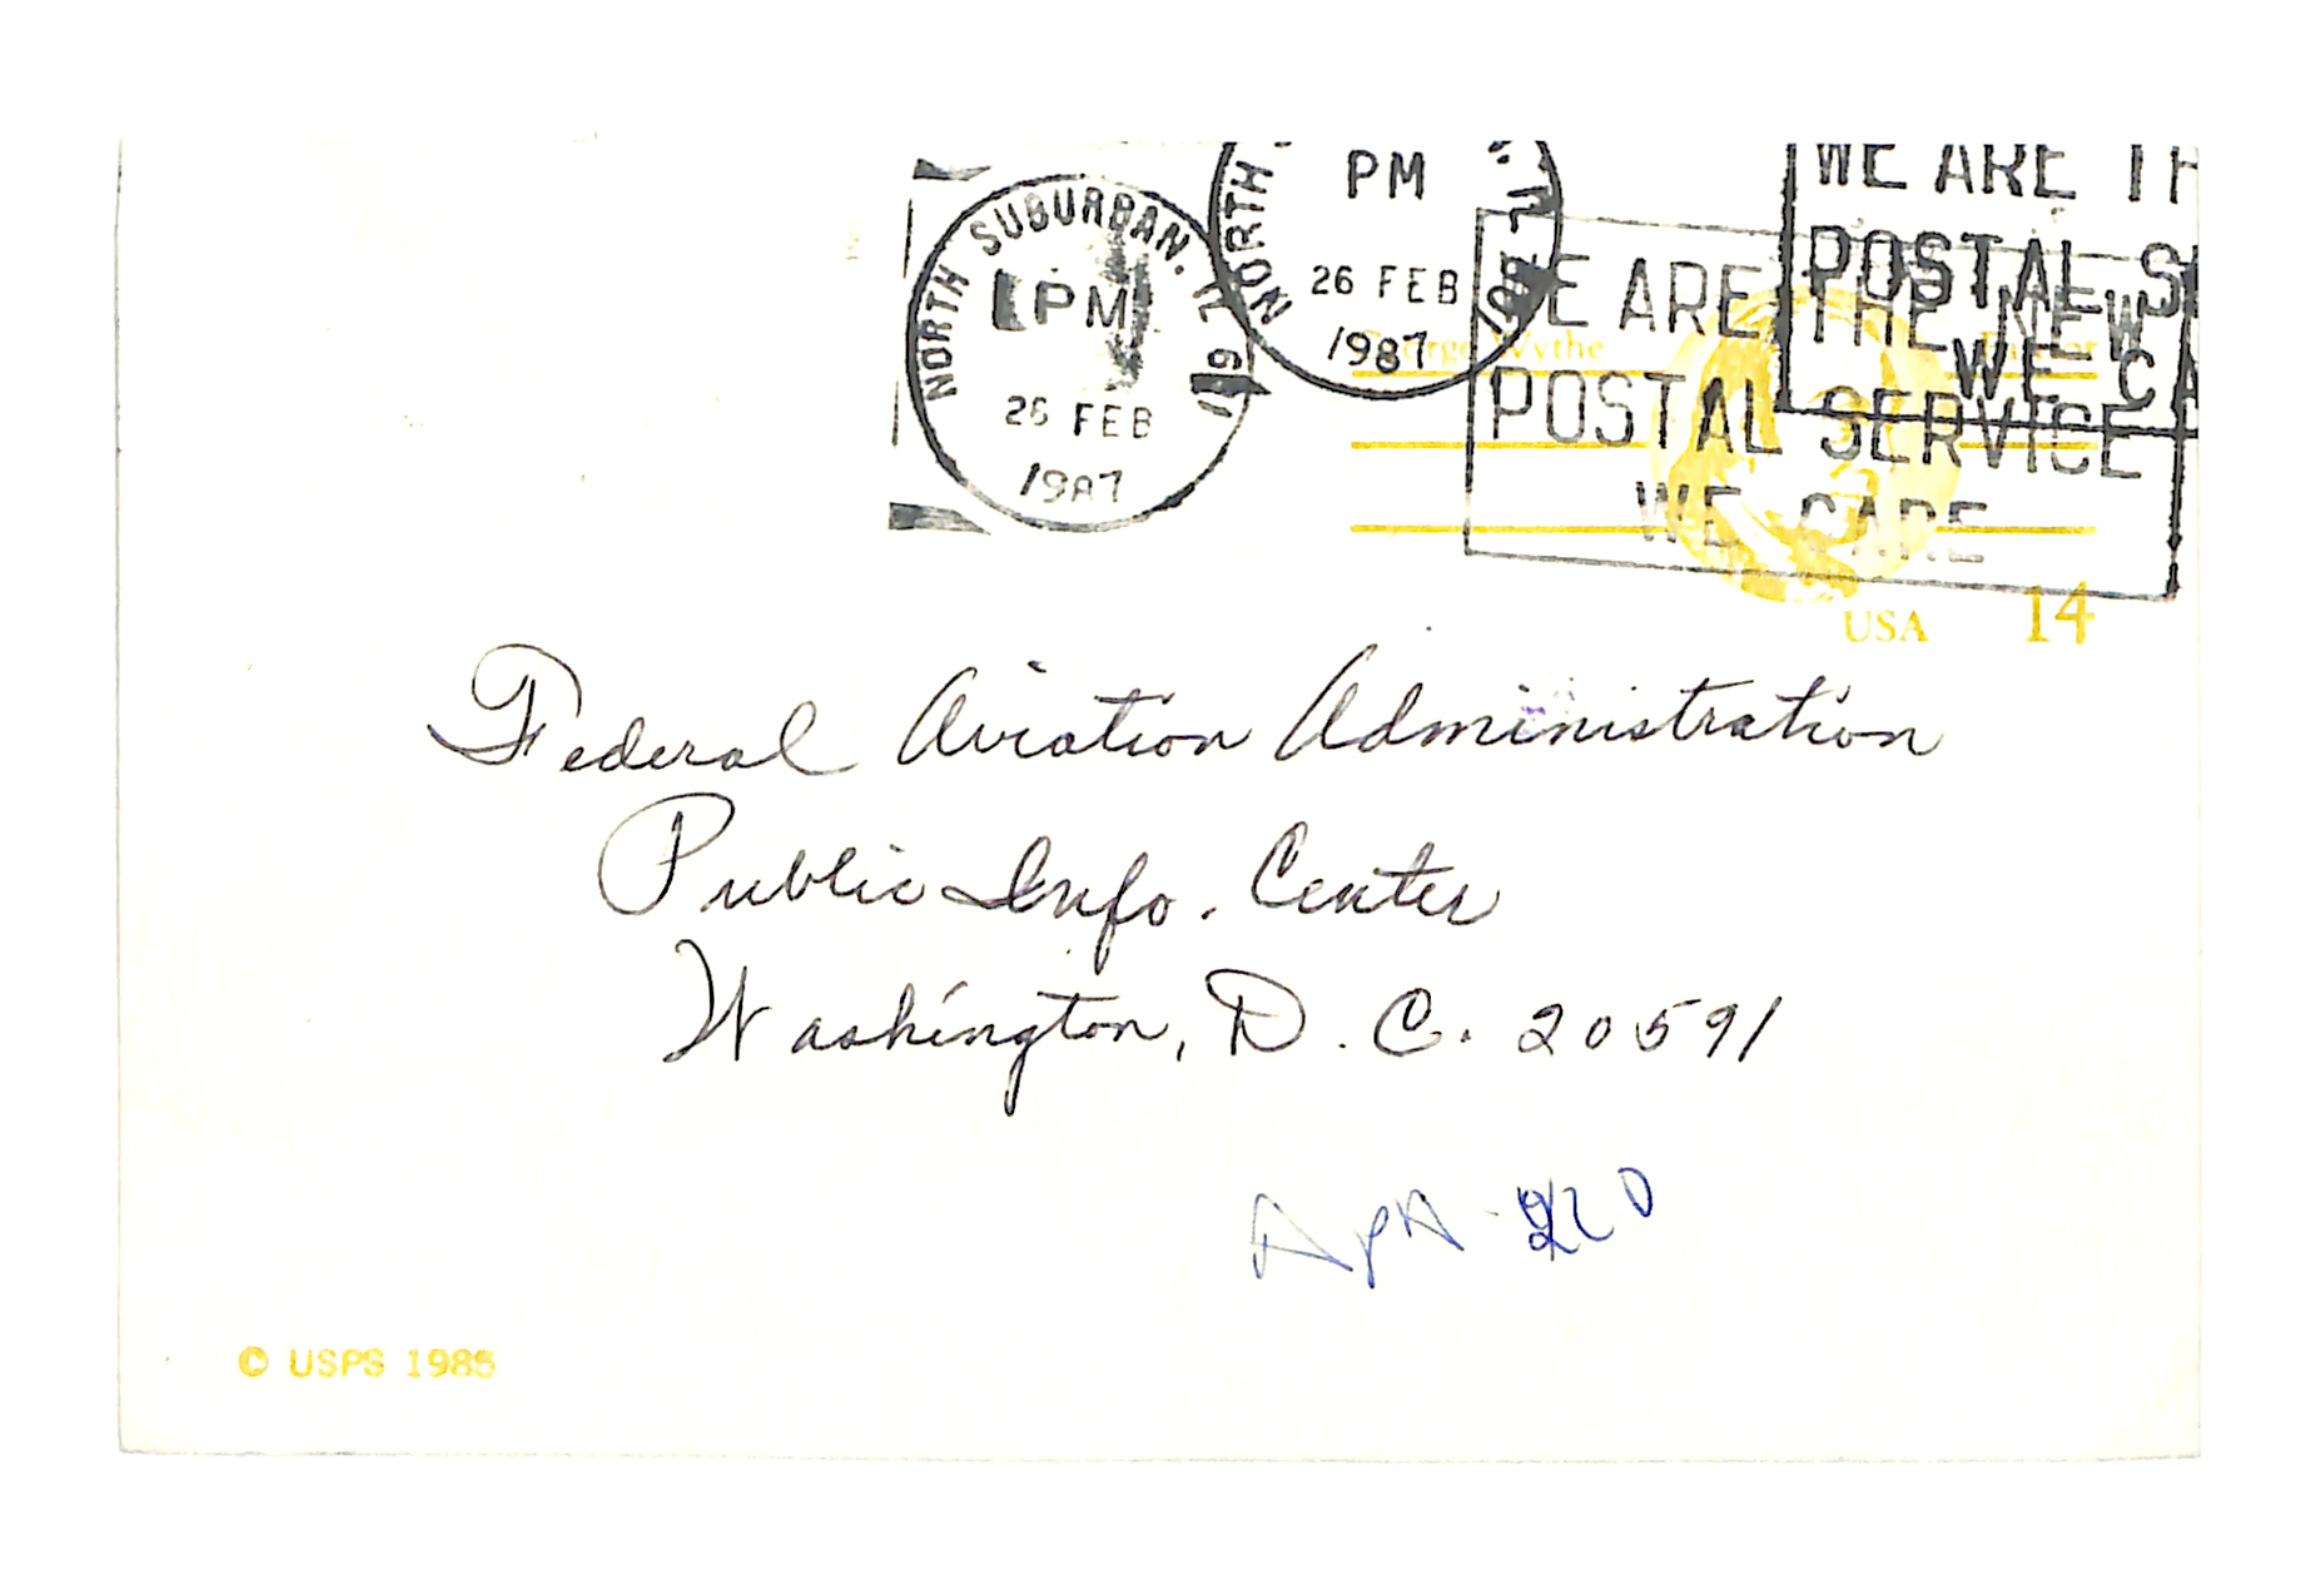 NORTH SUBURBAN, IL
PM
26 FEB
1987
NORTH
PM
26 FEB
1987
WE ARE THE NEW
POSTAL SERVICE
WE CARE
WE ARE
POSTAL
WE CA
George Wythe
USA 14
Federal Aviation Administration
Public Info. Center
Washington, D.C. 20591
APA-220
© USPS 1985